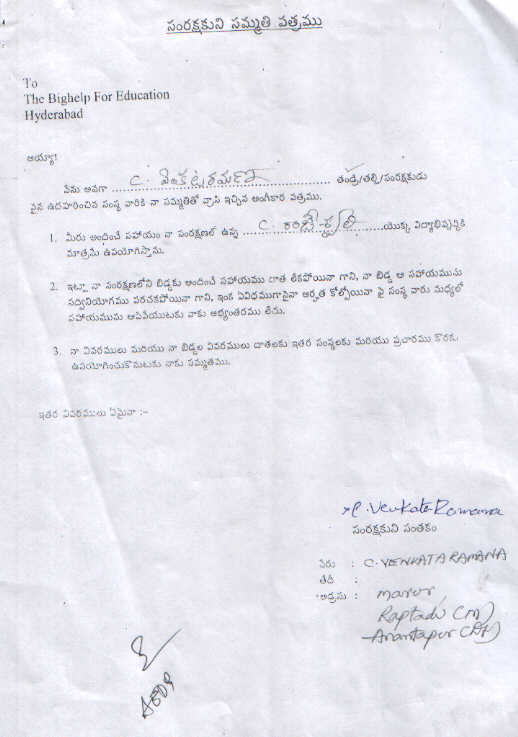 సంరక్షకుని సమ్మతి పత్రము
To
The Bighelp For Education
Hyderabad
అయ్యా!
నేను అనగా C. వెంకటరమణ తండ్రి/తల్లి/సంరక్షకుడు
పైన ఉదహరించిన సంస్థ వారికి నా సమ్మతితో వ్రాసి ఇచ్చిన అంగీకార పత్రము.
1. మీరు అందించే సహాయం నా సంరక్షణలో ఉన్న C. యొక్క విద్యాభివృద్ధికి
మాత్రమే ఉపయోగిస్తాను.
2. ఇట్లా నా సంరక్షణలోని బిడ్డకు అందించే సహాయము దాత లేకపోయినా గాని, నా బిడ్డ ఆ సహాయమును
సద్వినియోగము పరచకపోయినా గాని, ఇంక ఏవిధముగానైనా అర్హత కోల్పోయినా పై సంస్థ వారు మధ్యలో
సహాయమును ఆపివేయుటకు నాకు అభ్యంతరము లేదు.
3. నా వివరములు మరియు నా బిడ్డల వివరములు దాతలకు ఇతర సంస్థలకు మరియు ప్రచారము కొరకు
ఉపయోగించుకొనుటకు నాకు సమ్మతము.
ఇతర వివరములు ఏమైనా :-
C. Venkata Ramana
సంరక్షకుని సంతకం
పేరు : C. VENKATA RAMANA
తేది :
అడ్రసు : marur
Raptadu (M)
Anantapur (Dt)